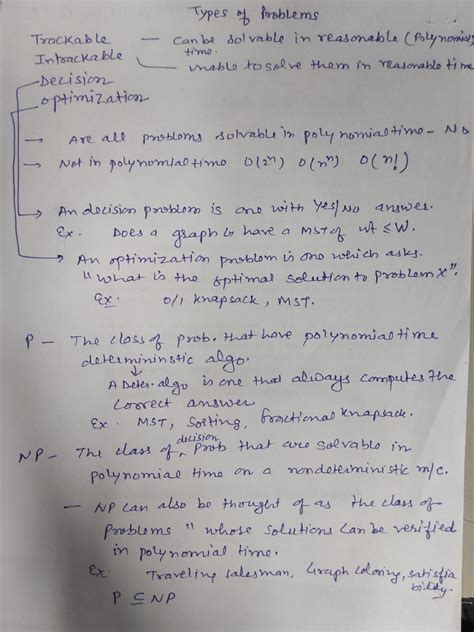 Types of Problems
Trackable — can be solvable in reasonable (Polynomial) time.
Intrackable — unable to solve them in reasonable time
Decision
Optimization
→ Are all problems solvable in polynomial time - No
→ Not in polynomial time O(2ⁿ) O(nⁿ) O(n!)
→ An decision problem is one with Yes/No answer.
Ex. Does a graph G have a MST of wt ≤ W.
→ An optimization problem is one which asks.
"What is the optimal solution to problem X".
Ex. 0/1 Knapsack, MST.
P - The class of prob. that have polynomial time
deterministic algo.
↓
A Deter. algo is one that always computes the
correct answer
Ex. MST, Sorting, fractional knapsack.
NP - The class of decision Prob that are solvable in
polynomial time on a nondeterministic m/c.
- NP can also be thought of as the class of
Problems "whose solutions can be verified
in polynomial time.
Ex Traveling salesman, Graph coloring, satisfia
bility.
P ⊆ NP